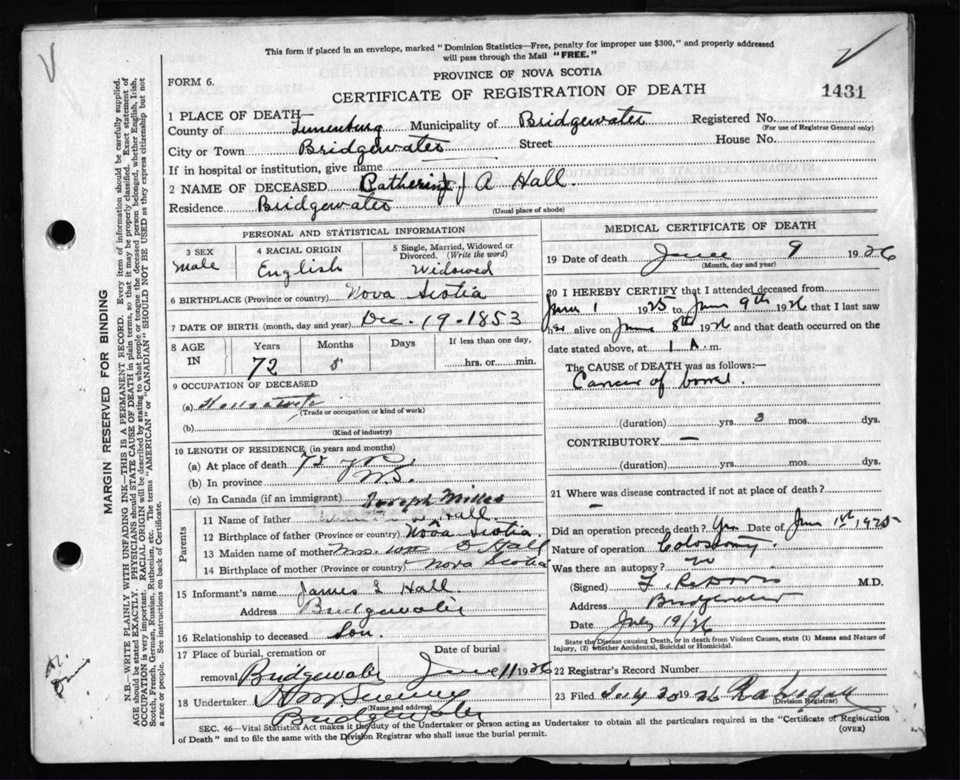 This form if placed in an envelope, marked "Dominion Statistics—Free, penalty for improper use $300," and properly addressed
will pass through the Mail "FREE."
PROVINCE OF NOVA SCOTIA
FORM 6.
CERTIFICATE OF REGISTRATION OF DEATH
1431
1 PLACE OF DEATH—
County of Lunenburg Municipality of Bridgewater Registered No.
(For use of Registrar General only)
City or Town Bridgewater Street House No.
If in hospital or institution, give name
2 NAME OF DECEASED Catherine A Hall.
Residence Bridgewater
(Usual place of abode)
PERSONAL AND STATISTICAL INFORMATION
3 SEX
Male
4 RACIAL ORIGIN
English
5 Single, Married, Widowed or
Divorced. (Write the word)
Widowed
6 BIRTHPLACE (Province or country) Nova Scotia
7 DATE OF BIRTH (month, day and year) Dec. 19-1853
8 AGE
IN
Years
72
Months
Days
If less than one day,
hrs. or min.
9 OCCUPATION OF DECEASED
(a) Housewife
(Trade or occupation or kind of work)
(b)
(Kind of industry)
10 LENGTH OF RESIDENCE (in years and months)
(a) At place of death 72 yrs
(b) In province N.S.
(c) In Canada (if an immigrant)
Parents
Joseph
11 Name of father Hall
12 Birthplace of father (Province or country) Nova Scotia
13 Maiden name of mother Mrs. Wm Hall
14 Birthplace of mother (Province or country) Nova Scotia
15 Informant's name James Hall
Address Bridgewater
16 Relationship to deceased Son.
17 Place of burial, cremation or
removal Bridgewater
Date of burial
June 11 1926
18 Undertaker
(Name and address)
Bridgewater
MEDICAL CERTIFICATE OF DEATH
19 Date of death June 9 1926
(Month, day and year)
20 I HEREBY CERTIFY that I attended deceased from
June 1 1925 to June 9th 1926 that I last saw
her alive on June 8th 1926 and that death occurred on
the date stated above, at 1 A.m.
The CAUSE OF DEATH was as follows:—
Cancer of bowel.
(duration) yrs. mos. dys.
CONTRIBUTORY —
(duration) yrs. mos. dys.
21 Where was disease contracted if not at place of death?
—
Did an operation precede death? Yes Date of June 1st 1925
Nature of operation Colostomy.
Was there an autopsy? no
(Signed) M.D.
Address Bridgewater
Date July 19/26
State the Disease causing Death, or in death from Violent Causes, state (1) Means and Nature of
Injury, (2) whether Accidental, Suicidal or Homicidal.
22 Registrar's Record Number
23 Filed July 20 1926
(Division Registrar)
SEC. 46—Vital Statistics Act makes it the duty of the Undertaker or person acting as Undertaker to obtain all the particulars required in the "Certificate of Registration
of Death" and to file the same with the Division Registrar who shall issue the burial permit.
(OVER)
MARGIN RESERVED FOR BINDING
N.B.—WRITE PLAINLY WITH UNFADING INK—THIS IS A PERMANENT RECORD. Every item of information should be carefully supplied.
AGE should be stated EXACTLY. PHYSICIANS should STATE CAUSE OF DEATH in plain terms, so that it may be properly classified. Exact statement of
OCCUPATION is very important. RACIAL ORIGIN will be described by stating to what people or tongue the deceased person belonged, whether English, Irish,
Scotch, French, German, Russian, Ruthenian, etc. The terms "AMERICAN" or "CANADIAN" SHOULD NOT BE USED as they express citizenship but not
a race or people. See instructions on back of Certificate.